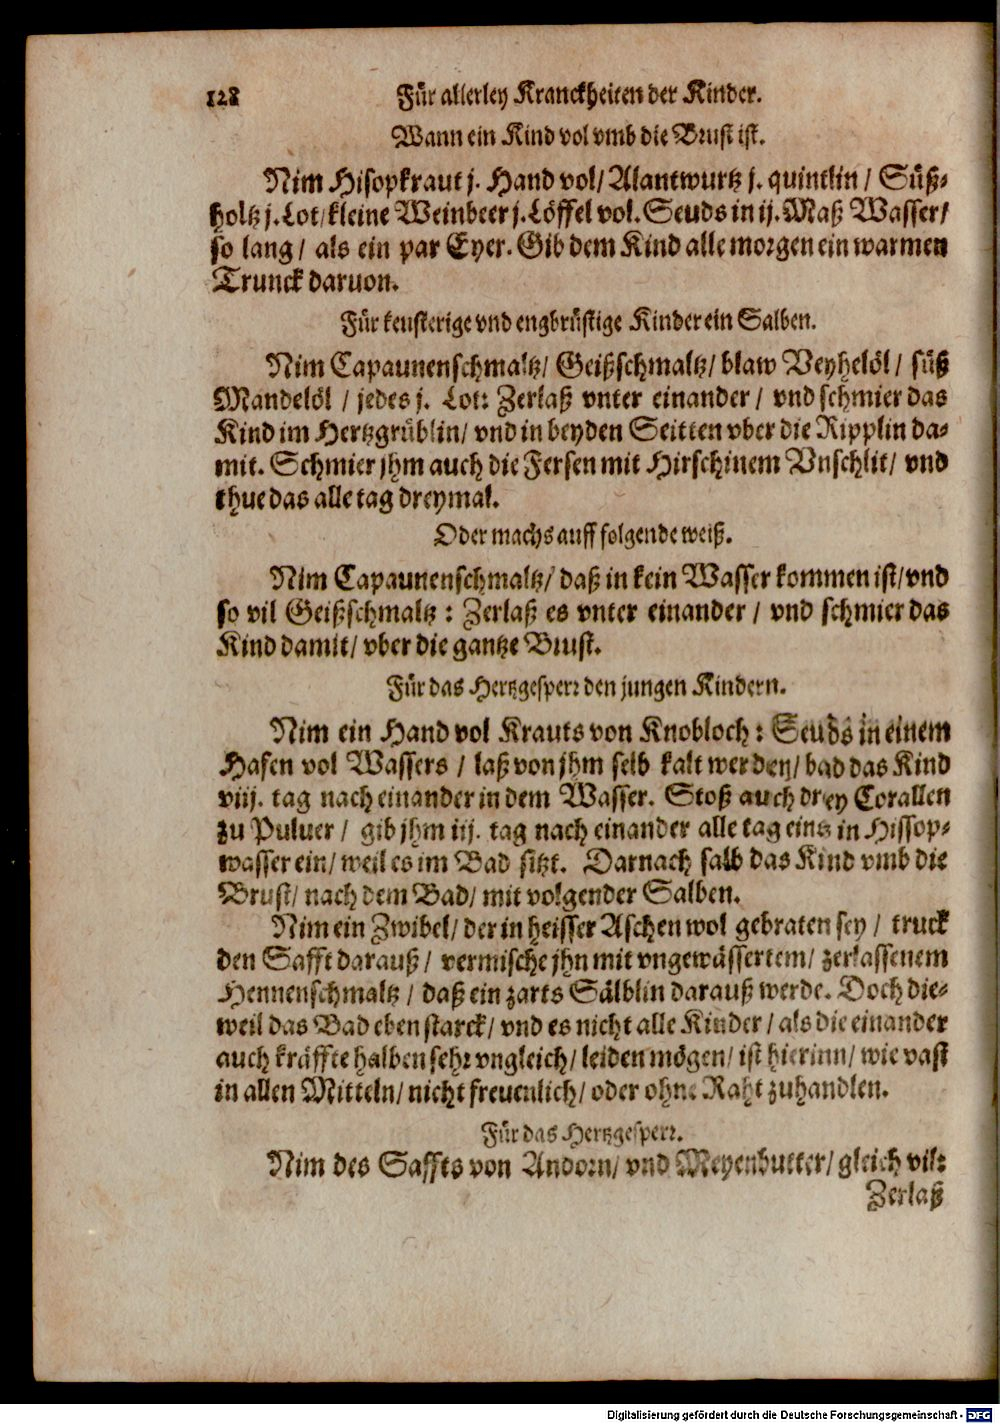 128 Für allerley Kranckheiten der Kinder.
Wann ein Kind vol vmb die Brust ist.
Nim Hisopkraut j. Hand vol/ Alantwurtz j. quintlin / Süß-
holtz j. Lot/ kleine Weinbeer j. Löffel vol. Seuds in ij. Maß Wasser/
so lang / als ein par Eyer. Gib dem Kind alle morgen ein warmen
Trunck daruon.
Für keusterige vnd engbrüstige Kinder ein Salben.
Nim Capaunenschmaltz/ Geißschmaltz/ blaw Veyhelöl / süß
Mandelöl / jedes j. Lot: Zerlaß vnter einander / vnd schmier das
Kind im Hertzgrüblin/ vnd in beyden Seitten vber die Ripplin da-
mit. Schmier jhm auch die Fersen mit Hirschinem Vnschlit/ vnd
thue das alle tag dreymal.
Oder machs auff folgende weiß.
Nim Capaunenschmaltz/ daß in kein Wasser kommen ist/ vnd
so vil Geißschmaltz : Zerlaß es vnter einander / vnd schmier das
Kind damit/ vber die gantze Brust.
Für das Hertzgesperr den jungen Kindern.
Nim ein Hand vol Krauts von Knobloch : Seuds in einem
Hafen vol Wassers / laß von jhm selb kalt werden/ bad das Kind
viij. tag nach einander in dem Wasser. Stoß auch drey Corallen
zu Puluer / gib jhm iij. tag nach einander alle tag eins in Hissop-
wasser ein/ weil es im Bad sitzt. Darnach salb das Kind vmb die
Brust/ nach dem Bad/ mit volgender Salben.
Nim ein Zwibel/ der in heisser Aschen wol gebraten sey / truck
den Safft darauß / vermische jhn mit vngewässertem/ zerlassenem
Hennenschmaltz / daß ein zarts Sälblin darauß werde. Doch die-
weil das Bad eben starck/ vnd es nicht alle Kinder / als die einander
auch kräffte halben sehr vngleich/ leiden mögen/ ist hierinn/ wie vast
in allen Mitteln/ nicht freuenlich/ oder ohne Raht zuhandlen.
Für das Hertzgesperr.
Nim des Saffts von Andorn/ vnd Meyenbutter/ gleich vil:
Zerlaß
Digitalisierung gefördert durch die Deutsche Forschungsgemeinschaft - DFG